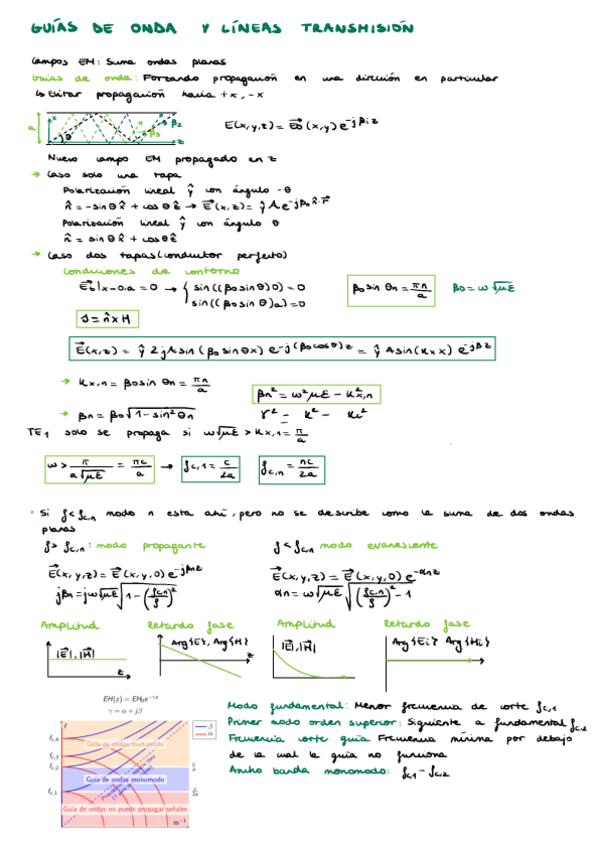 GUÍAS DE ONDA Y LÍNEAS TRANSMISIÓN
Campos EM: Suma ondas planas
Guías de onda: Forzando propagación en una dirección en particular
↳ Evitar propagación hacia +x, -x
a x θ z β2 β3
E(x,y,z) = E0(x,y) e^{-jβiz}
Nuevo campo EM propagado en z
→ Caso solo una tapa
Polarización lineal ŷ con ángulo -θ
n̂ = -sinθ x̂ + cosθ ẑ → E(x,z) = ŷ A e^{-jβ0 n̂·r}
Polarización lineal ŷ con ángulo θ
n̂ = sinθ x̂ + cosθ ẑ
→ Caso dos tapas (conductor perfecto)
Condiciones de contorno
E0|x=0,a = 0 → { sin((β0 sinθ)0) = 0
sin((β0 sinθ)a) = 0
β0 sin θn = πn/a
β0 = ω√με
J = n̂ x H
E(x,z) = ŷ 2jA sin(β0 sinθx) e^{-j(β0 cosθ)z} = ŷ A sin(kx x) e^{-jβz}
→ kx,n = β0 sin θn = πn/a
βn² = ω²με - k²x,n
→ βn = β0 √(1 - sin² θn)
γ² = k² - kc²
TE1 solo se propaga si ω√με > kx,1 = π/a
ω > π/(a√με) = πc/a → fc,1 = c/2a
fc,n = nc/2a
• Si f < fc,n modo n esta ahí, pero no se describe como la suma de dos ondas
planas
f > fc,n: modo propagante
f < fc,n modo evanescente
E(x,y,z) = E(x,y,0) e^{-jβnz}
E(x,y,z) = E(x,y,0) e^{-αnz}
jβn = jω√με √(1 - (fc,n/f)²)
αn = ω√με √((fc,n/f)² - 1)
Amplitud Retardo fase Amplitud Retardo fase
|E|, |H| z
Arg{E}, Arg{H} z
|E|, |H|
Arg{E} Arg{H}
EH(z) = EH0e^{-γz}
γ = α + jβ
f β α
fc,4
fc,3
fc,2
fc,1
Guía de ondas multimodo
Guía de ondas monomodo
Guía de ondas no puede propagar señales
m⁻¹
Modo fundamental: Menor frecuencia de corte fc,1
Primer modo orden superior: Siguiente a fundamental fc,2
Frecuencia corte guía Frecuencia mínima por debajo
de la cual la guía no funciona
Ancho banda monomodo: fc,1 - fc,2